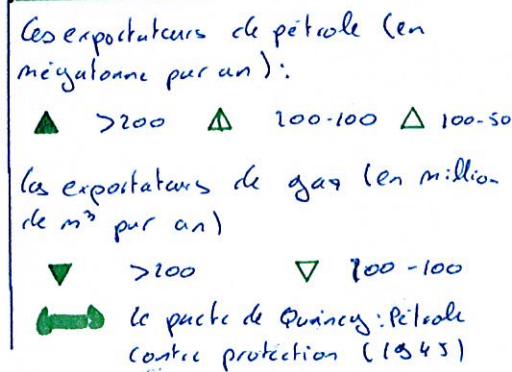 Les exportateurs de pétrole (en
mégatonne par an):
>200 200-100 100-50
Les exportateurs de gaz (en million
de m³ par an)
>200 200-100
le pacte de Quincy: Pétrole
contre protection (1945)